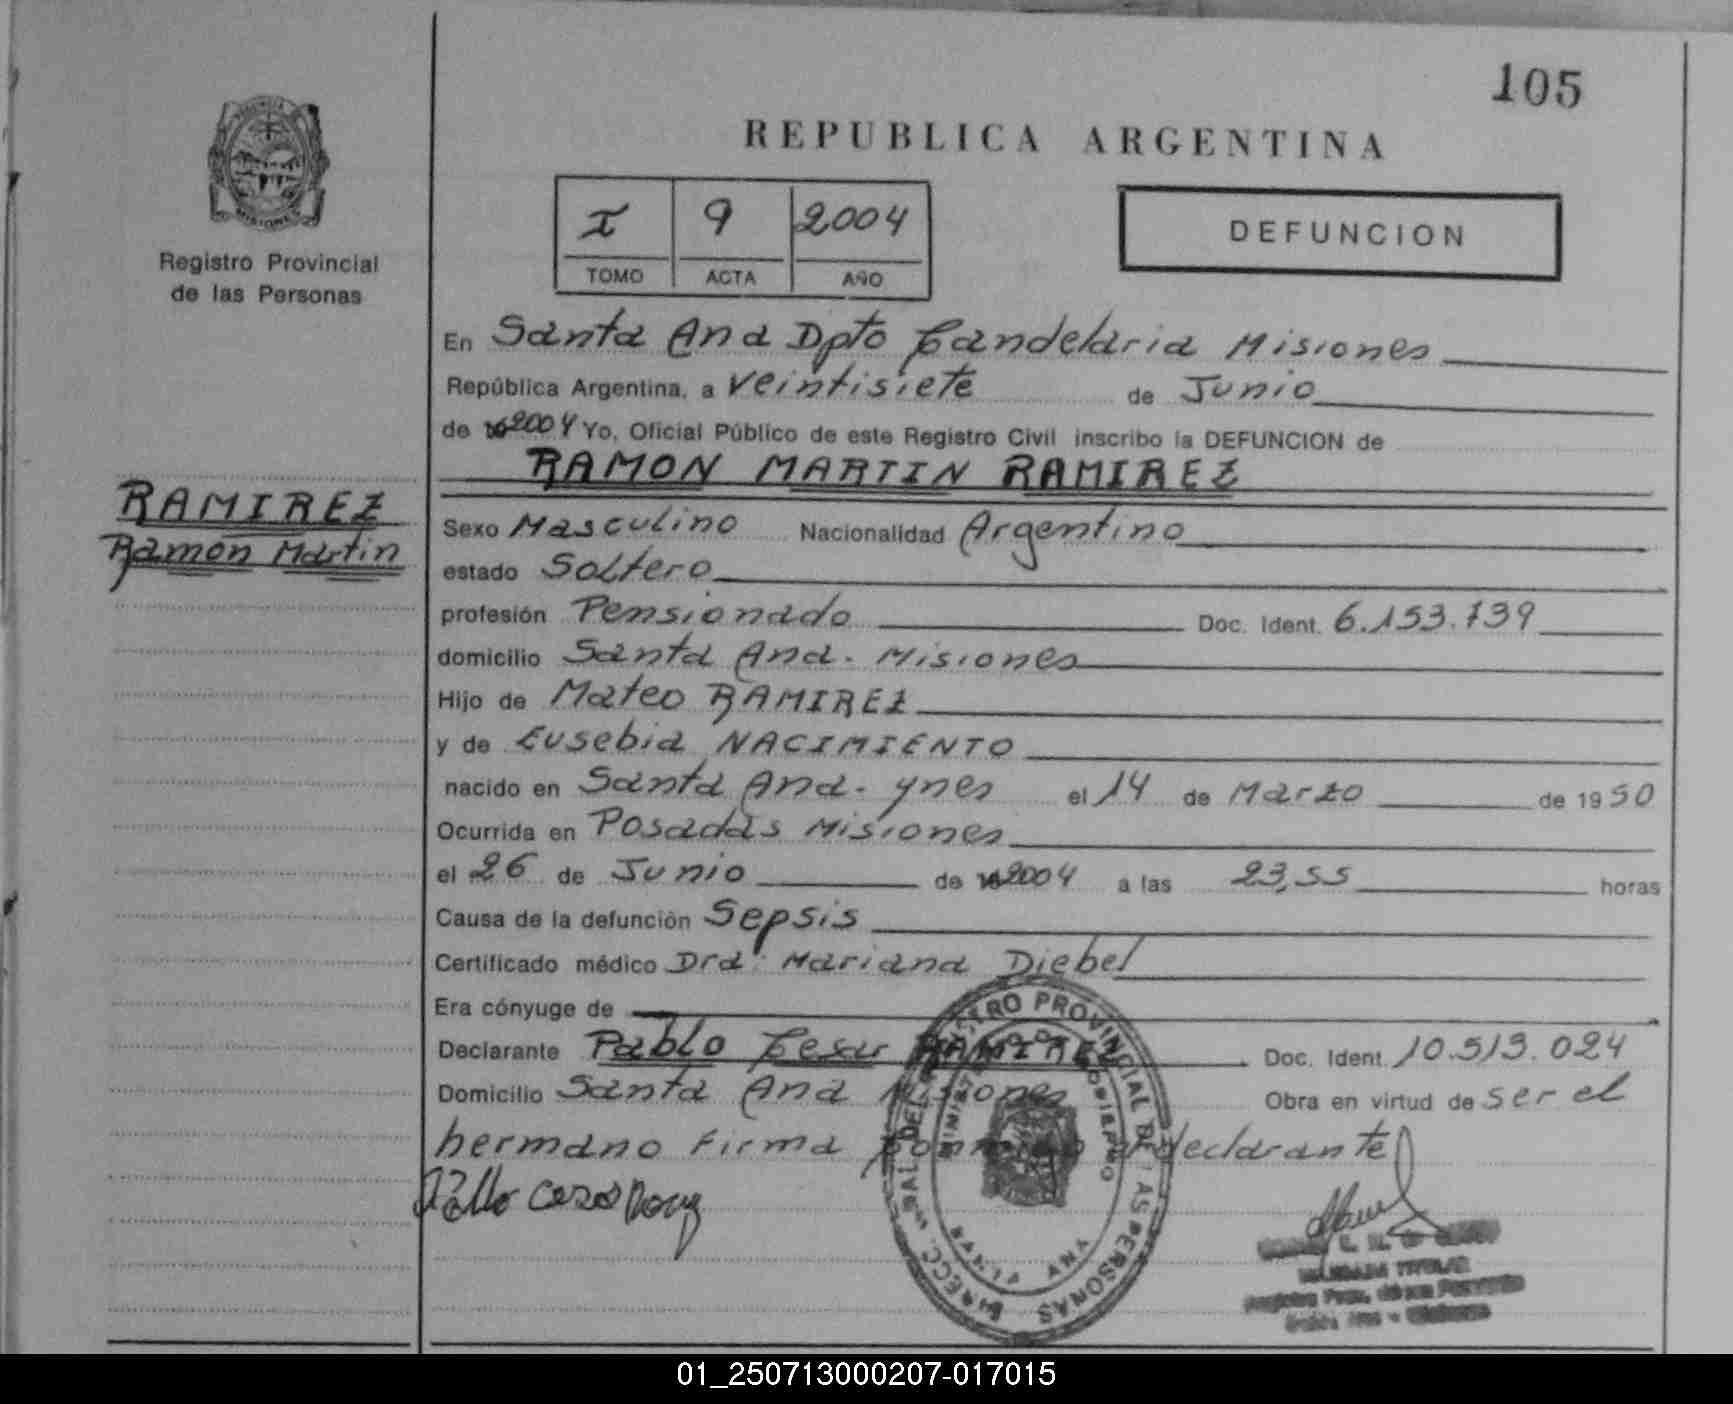 105
REPUBLICA ARGENTINA
MISIONES
Registro Provincial
de las Personas
I 9 2004
TOMO ACTA AÑO
DEFUNCION
En Santa Ana Dpto Candelaria Misiones
República Argentina, a veintisiete de Junio
de 2004 Yo, Oficial Público de este Registro Civil inscribo la DEFUNCION de
RAMON MARTIN RAMIREZ
RAMIREZ
Ramon Martin
Sexo Masculino Nacionalidad Argentino
estado Soltero
profesión Pensionado Doc. Ident. 6.153.739
domicilio Santa Ana. Misiones
Hijo de Mateo RAMIREZ
y de Eusebia NACIMIENTO
nacido en Santa Ana. ynes el 14 de Marzo de 1950
Ocurrida en Posadas Misiones
el 26 de Junio de 2004 a las 23,55 horas
Causa de la defunción Sepsis
Certificado médico Dra. Mariana Diebel
Era cónyuge de
Declarante Pablo Cesar RAMIREZ Doc. Ident. 10.513.024
Domicilio Santa Ana Misiones Obra en virtud de ser el
hermano Firma el declarante
REGISTRO PROVINCIAL DE LAS PERSONAS
SANTA ANA
01_250713000207-017015